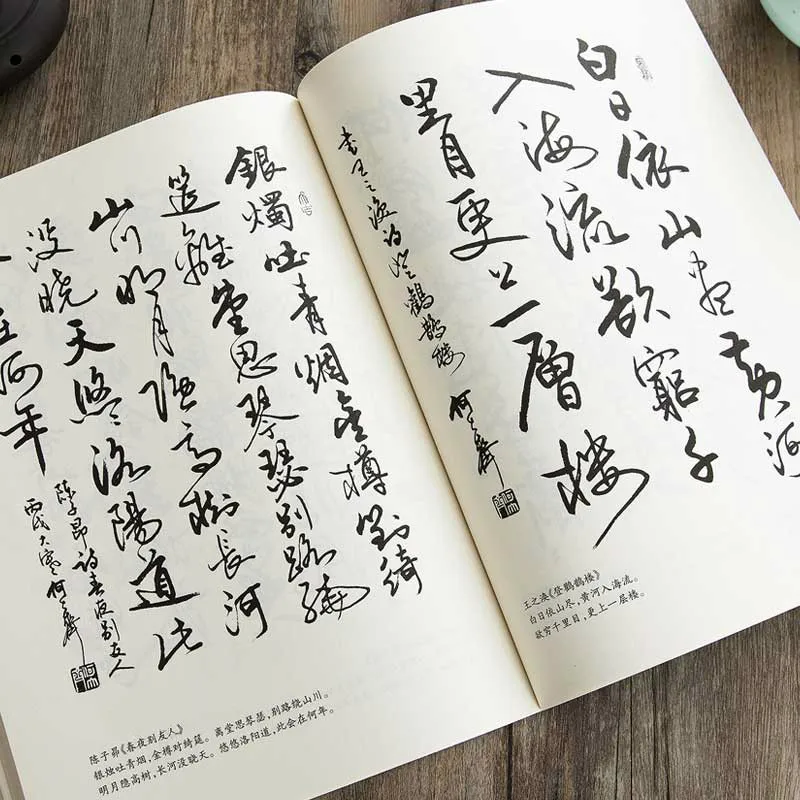 銀燭吐青烟金樽對綺
筵離堂思琴瑟別路繞
山川明月隱高樹長河
沒曉天悠悠洛陽道此
在何年
陳子昂詩春夜別友人
丙戌大寒何
陈子昂《春夜别友人》
银烛吐青烟,金樽对绮筵。离堂思琴瑟,别路绕山川。
明月隐高树,长河没晓天。悠悠洛阳道,此会在何年。
白日依山盡黃河
入海流欲窮千
里目更上一層樓
書王之渙詩登鸛鵲樓 何
王之涣《登鹳鹊楼》
白日依山尽,黄河入海流。
欲穷千里目,更上一层楼。